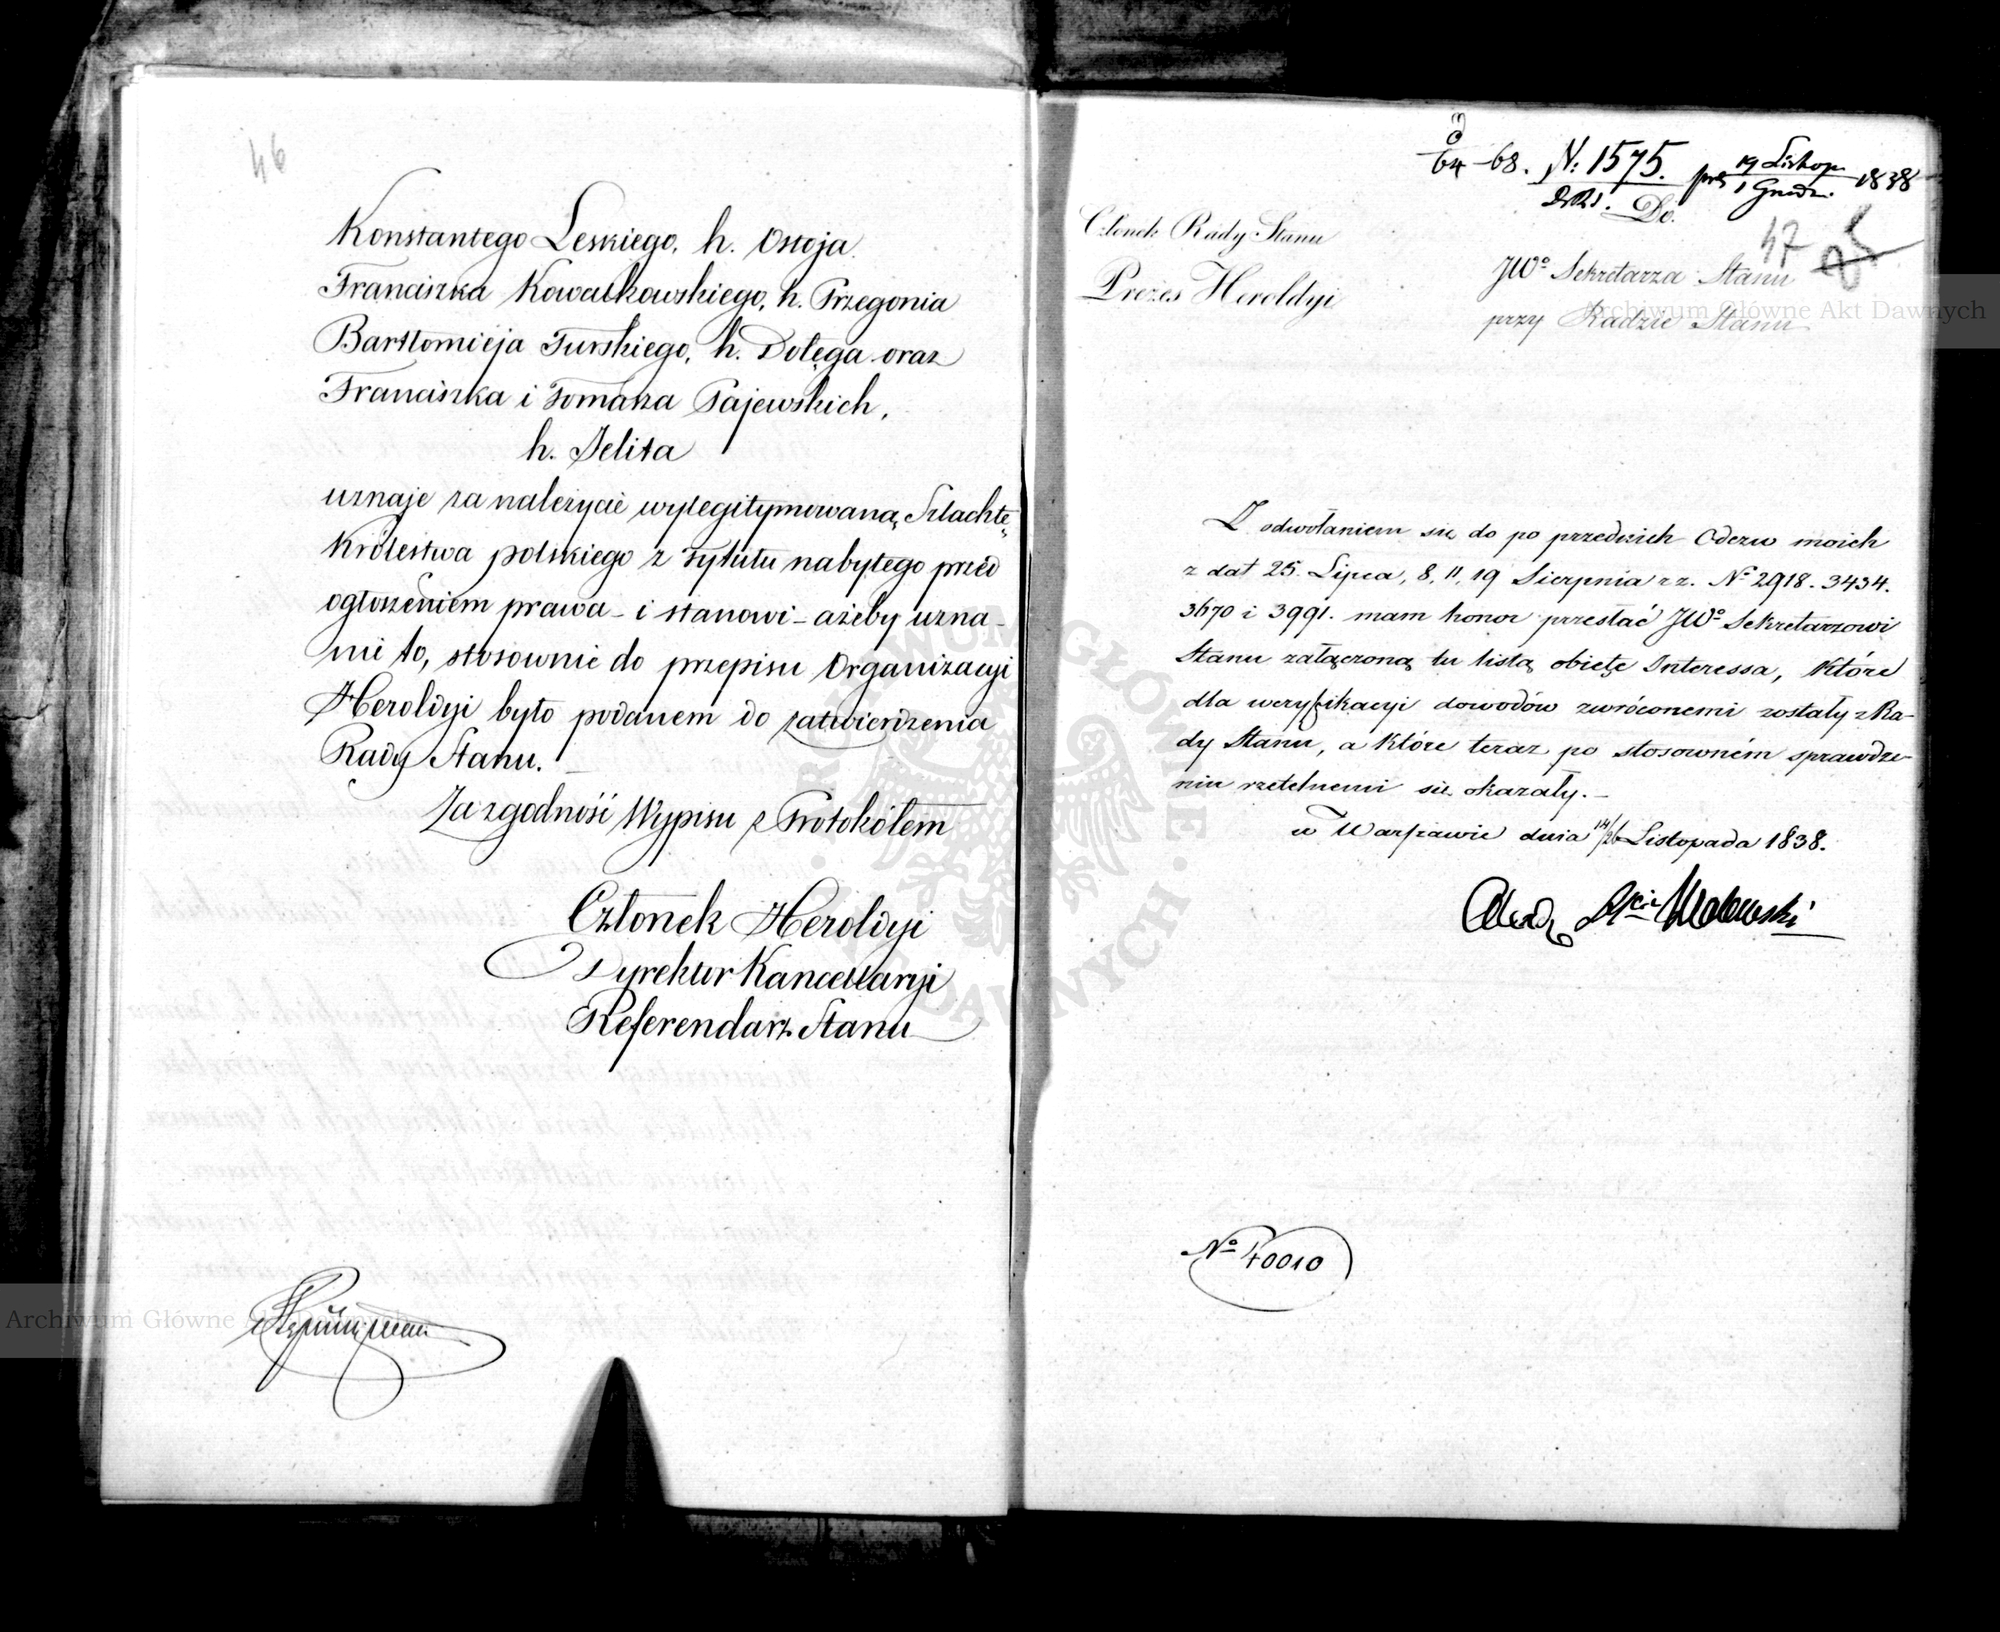 46
Konstantego Leskiego, h. Ostoja
Franciszka Kowalkowskiego, h. Przegonia
Bartłomieja Turskiego, h. Dołęga oraz
Franciszka i Tomasza Pajewskich,
h. Jelita
uznaje za należycie wylegitymowaną Szlachtę
Królestwa polskiego z tytułu nabytego przed
ogłoszeniem prawa – i stanowi – ażeby uzna-
nie to, stosownie do przepisu Organizacyi
Heroldyi było podanem do zatwierdzenia
Rady Stanu.
Za zgodność Wypisu z Protokółem
Członek Heroldyi
Dyrektor Kancellaryi
Referendarz Stanu
64 – 68. N: 1575. prez 19 Listop. / 1 Grudz. 1838
Do.
47
Członek Rady Stanu
Prezes Heroldyi
JWo Sekretarza Stanu
przy Radzie Stanu
Z odwołaniem się do po przednich Odezw moich
z dat 25. Lipca, 8, 11, 19 Sierpnia r z. No 2918. 3434.
3670 i 3991. mam honor przesłać JWo Sekretarzowi
Stanu załączoną tu listą objęte Interessa, które
dla weryfikacyi dowodów zwróconemi zostały z Ra-
dy Stanu, a które teraz po stosowném sprawdze-
niu rzetelnemi się okazały. –
w Warszawie dnia 14/26 Listopada 1838.
No 40010
Archiwum Główne Akt Dawnych
Archiwum Główne Akt Dawnych
ARCHIWUM GŁÓWNE AKT DAWNYCH